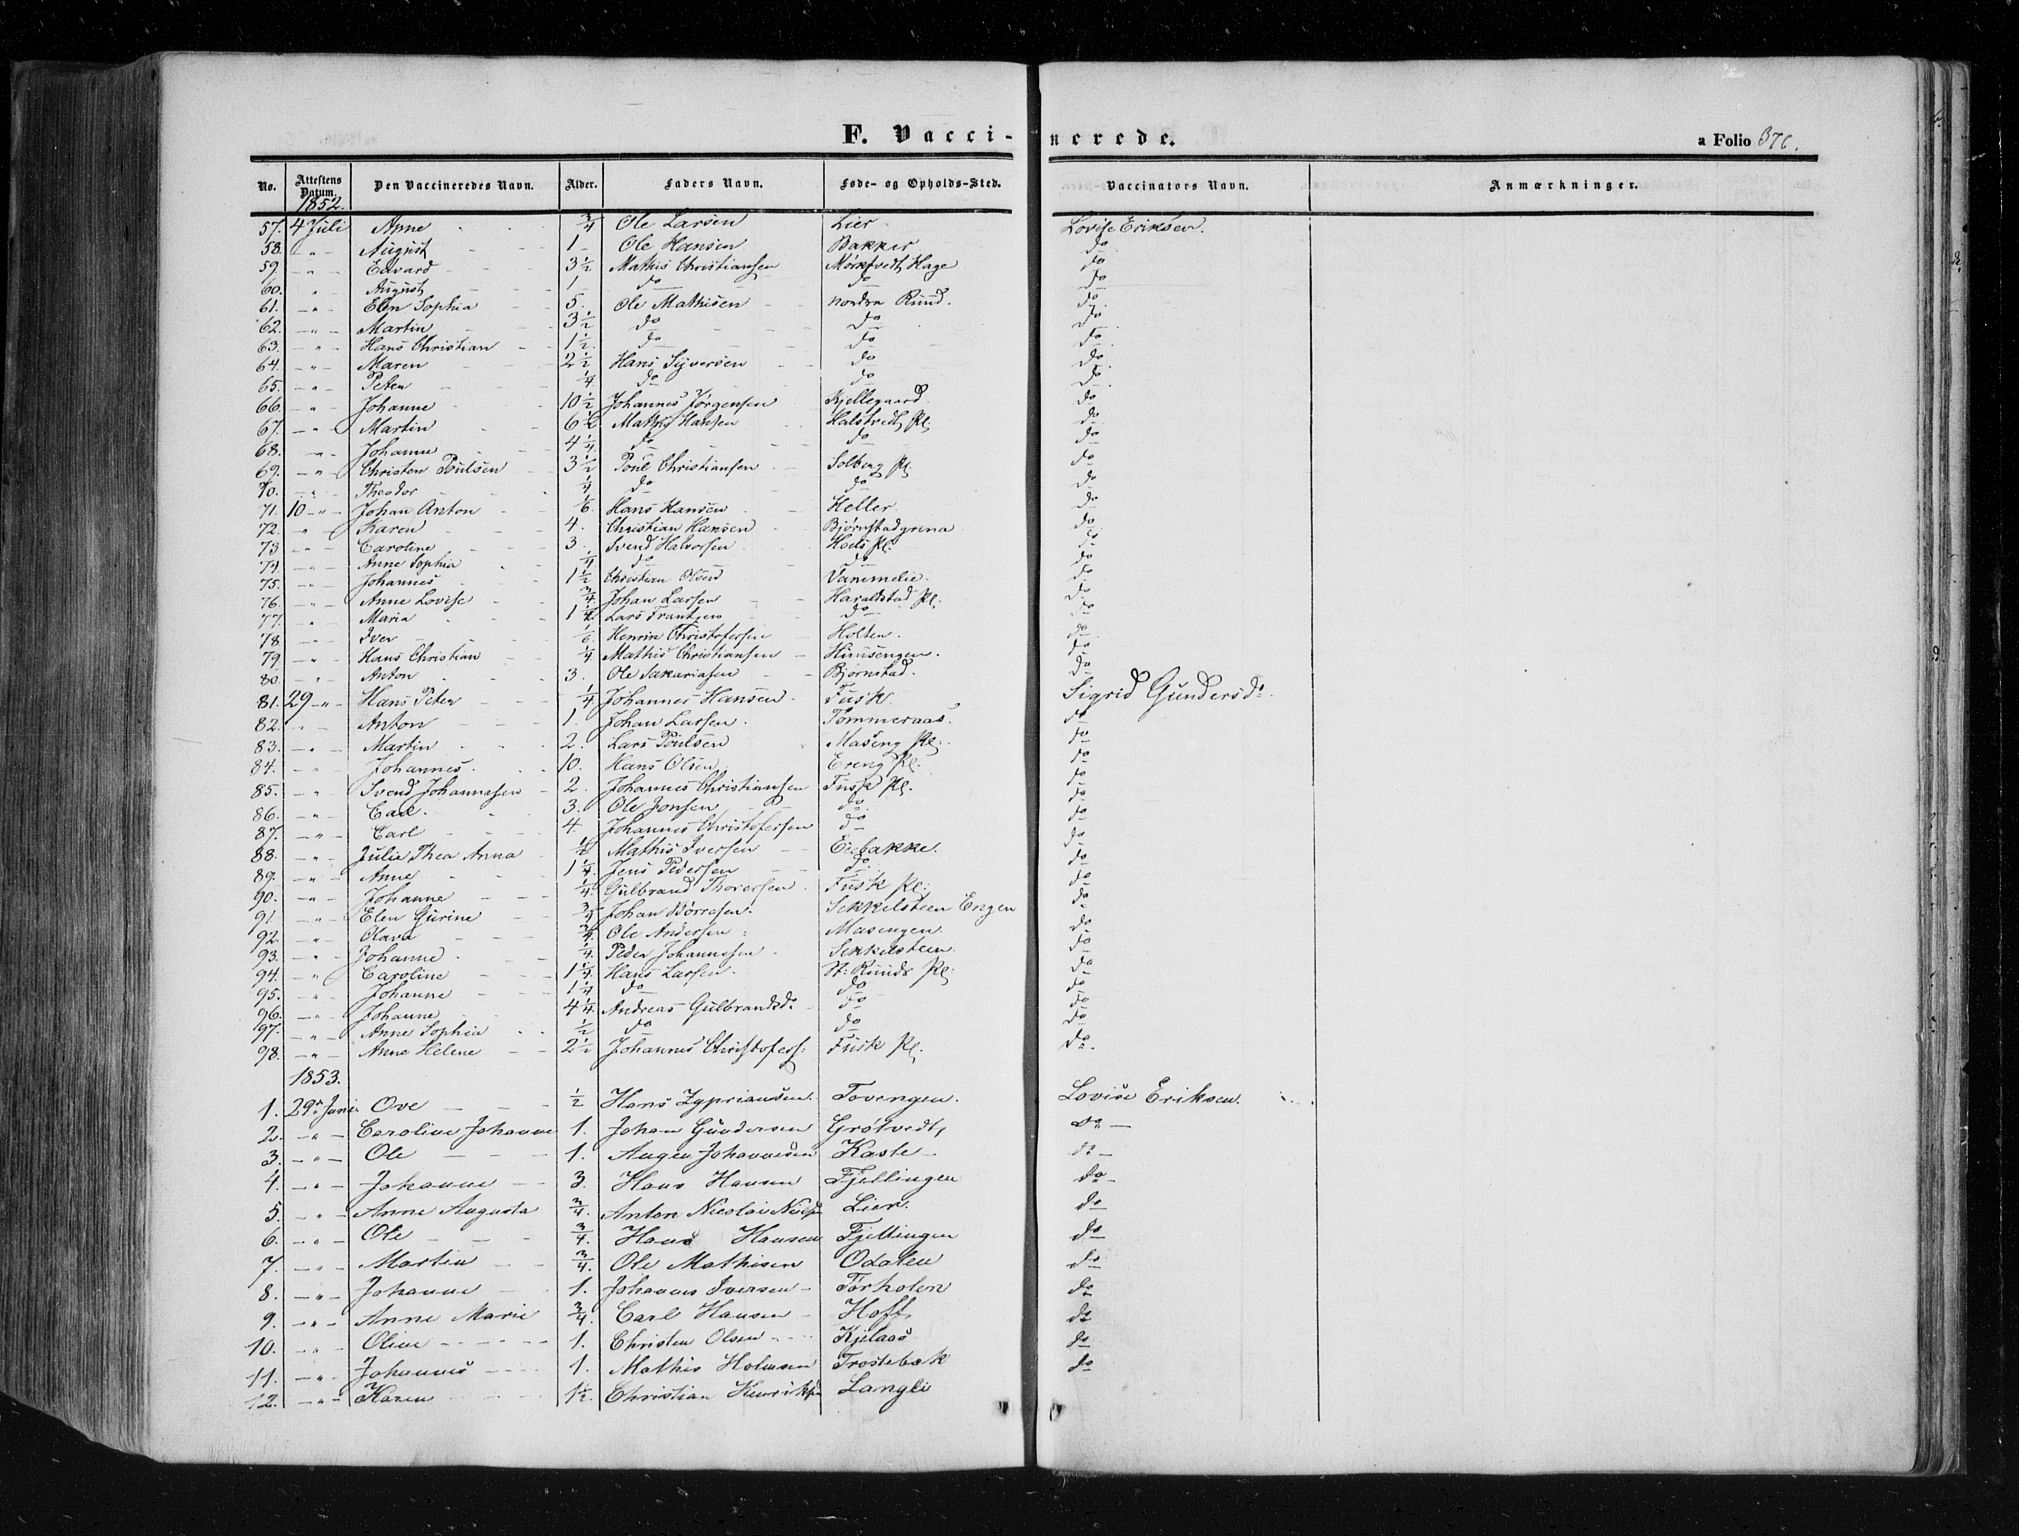 F. Vacci-nerede.
a Folio 376.
No. Attestens Datum. Den Vaccineredes Navn. Alder. Faders Navn. Føde- og Opholds-Sted. Vaccinators Navn. Anmærkninger.
1852.
57. 4 Juli Anne 3/4 Ole Larsen Lier Lovise Eriksen.
58. - " - August 1 - Ole Hansen Bakker do
59. - " - Edvard 3 1/2 Mathis Christiansen Mørkvedt Hage do
60. - " - August 1 do do do
61. - " - Elen Sophia 5. Ole Mathisen nordra Ruud. do
62. - " - Martin 3 1/2 do do do
63. - " - Hans Christian 1 1/2. do do do
64. - " - Maren 2 1/2 Hans Syversen do do
65. - " - Peter 1/4 do do do
66. - " - Johanne 10 1/2 Johannes Jørgensen Kjellegaard. do
67. - " - Martin 6 1/2 Mathis Hansen Halstvedt Pl. do
68. - " - Johanne 4 1/4 do do do
69. - " - Christen Poulsen 3 1/2 Poul Christiansen Solberg Pl. do
70. - " - Theodor 1/4 do do do
71. 10 - " - Johan Anton 1/6 Hans Hansen Heller do
72. - " - Karen 4. Christian Hansen Bjørnstadgrena do
73 - " - Caroline 3. Svend Halvorsen Hoels Pl. do
74. - " - Anne Sophia 1/4 do do do
75. - " - Johannes 1 1/2 Christian Olsen Vammelie. do
76. - " - Anne Lovise 3/4 Johan Larsen Haraldstad Pl. do
77. - " - Maria 1 1/2 Lars Frantzen do do
78 - " - Iver 1/6 Henrik Christofersen Holten. do
79 - " - Hans Christian 1/4 Mathis Christiansen Hunsengen. do
80. - " - Anton 3. Ole Sakariasen Bjørnstad. do
81. 29 - " - Hans Peter 1/4 Johannes Hansen Fusk Sigrid Gundersd:
82. - " - Anton 1. Johan Larsen. Tommeraas. do
83. - " - Martin 2. Lars Poulsen Maseng Pl. do
84. - " - Johannes. 10. Hans Olsen Ereng Pl. do
85. - " - Svend Johannesen 2. Johannes Christiansen Fusk Pl. do
86. - " - Carl. 3. Ole Jonsen do do
87. - " - Carl 4. Johannes Christofersen do do
88. - " - Julie Thea Anna 1/2 Mathis Iversen Eiebakke. do
89. - " - Anne 1 1/4. Jens Pedersen do do
90. - " - Johanne 1/4. Gulbrand Thorersen Fusk Pl. do
91 - " - Elen Gurine 3/4 Johan Børresen. Sekkelsteen Engen do
92. - " - Olava 3/4. Ole Andersen Masengen. do
93. - " - Johanne 1/4. Peder Johannesen Sekkelsteen. do
94. - " - Caroline 1 1/4. Hans Larsen St: Ruuds Pl. do
95. - " - Johanne 1 1/4 do do do
96. - " - Johanne 4 1/4. Andreas Gulbrandsd. do do
97. - " - Anne Sophia 1/2 do do do
98. - " - Anne Helene 2 1/2 Johannes Christofers: Fusk Pl. do.
1853.
1. 29de Juni Ove 1/2 Hans Zypriansen. Tovengen. Lovise Eriksen.
2. - " - Caroline Johanne 1. Johan Gundersen Grøtvedt, do
3. - " - Ole 1. Augen Johannesen Kaste do
4. - " - Johanne 3. Hans Hansen Fjellingen do
5. - " - Anne Augusta 3/4. Anton Nicolai Lier. do
6. - " - Ole 3/4. Hans Hansen Fjellingen do
7. - " - Martin 3/4. Ole Mathisen Odalen do
8. - " - Johanne 1. Johannes Iversen Tørholen do
9. - " - Anne Marie 3/4 Carl Hansen Hoff do
10. - " - Oline 1. Christen Olsen Kjelaas do
11. - " - Johannes 1. Mathis Holmsen Trostebæk do
12. - " - Karen 1 1/2. Christian Henriksen Langli